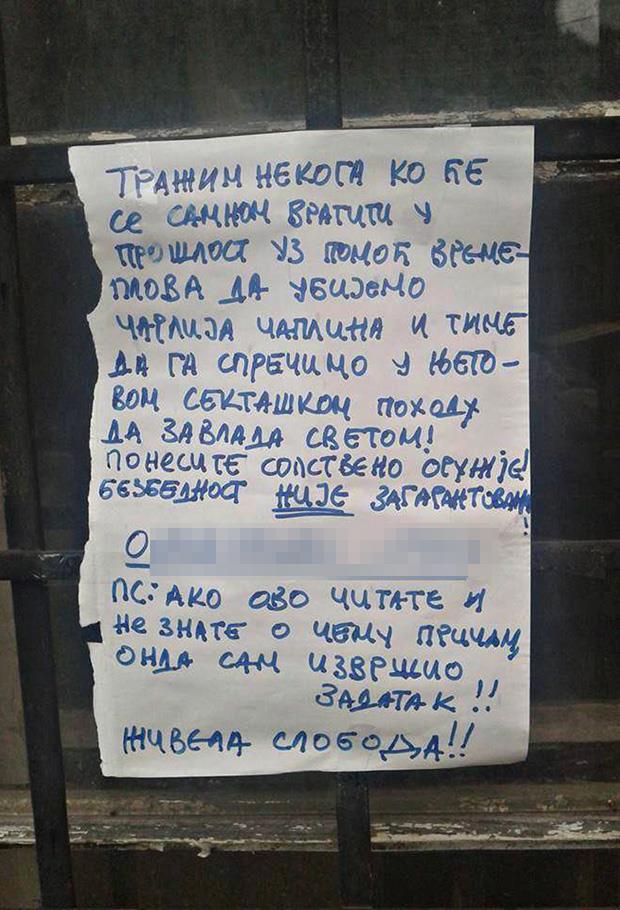 ТРАЖИМ НЕКОГА КО ЋЕ
СЕ САМНОМ ВРАТИТИ У
ПРОШЛОСТ УЗ ПОМОЋ ВРЕМЕ-
ПЛОВА ДА УБИЈЕМО
ЧАРЛИЈА ЧАПЛИНА И ТИМЕ
ДА ГА СПРЕЧИМО У ЊЕГО-
ВОМ СЕКТАШКОМ ПОХОДУ
ДА ЗАВЛАДА СВЕТОМ!
ПОНЕСИТЕ СОПСТВЕНО ОРУЖЈЕ!
БЕЗБЕДНОСТ НИЈЕ ЗАГАРАНТОВАНА!
О
ПС: АКО ОВО ЧИТАТЕ И
НЕ ЗНАТЕ О ЧЕМУ ПРИЧАМ,
ОНДА САМ ИЗВРШИО
ЗАДАТАК!!
ЖИВЕЛА СЛОБОДА!!